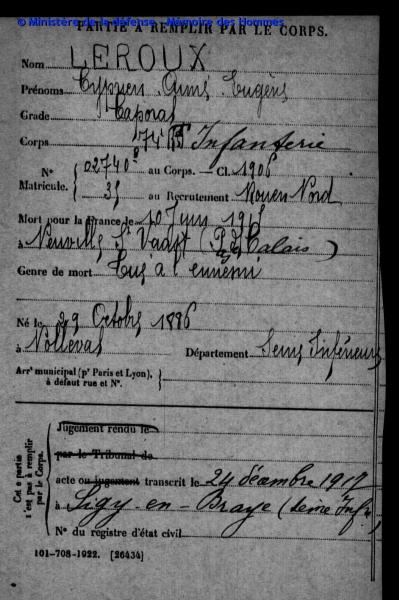 © Ministère de la défense - Mémoire des Hommes
PARTIE À REMPLIR PAR LE CORPS.
Nom LEROUX
Prénoms Cyprien Aimé Eugène
Grade Caporal
Corps 74e Rt Infanterie
N° 02740 au Corps. — Cl. 1906
Matricule. 35 au Recrutement Rouen Nord
Mort pour la France le 10 Juin 1915
à Neuville St Vaast (P. de Calais)
Genre de mort Tué à l'ennemi
Né le 29 Octobre 1886
à Nolleval Département Seine Inférieure
Arrt municipal (pr Paris et Lyon), à défaut rue et N°.
Cette partie n'est pas à remplir par le Corps.
Jugement rendu le
par le Tribunal de
acte ou jugement transcrit le 24 décembre 1917
à Sigy-en-Braye (Seine Infre)
N° du registre d'état civil
101-708-1922. [26434]